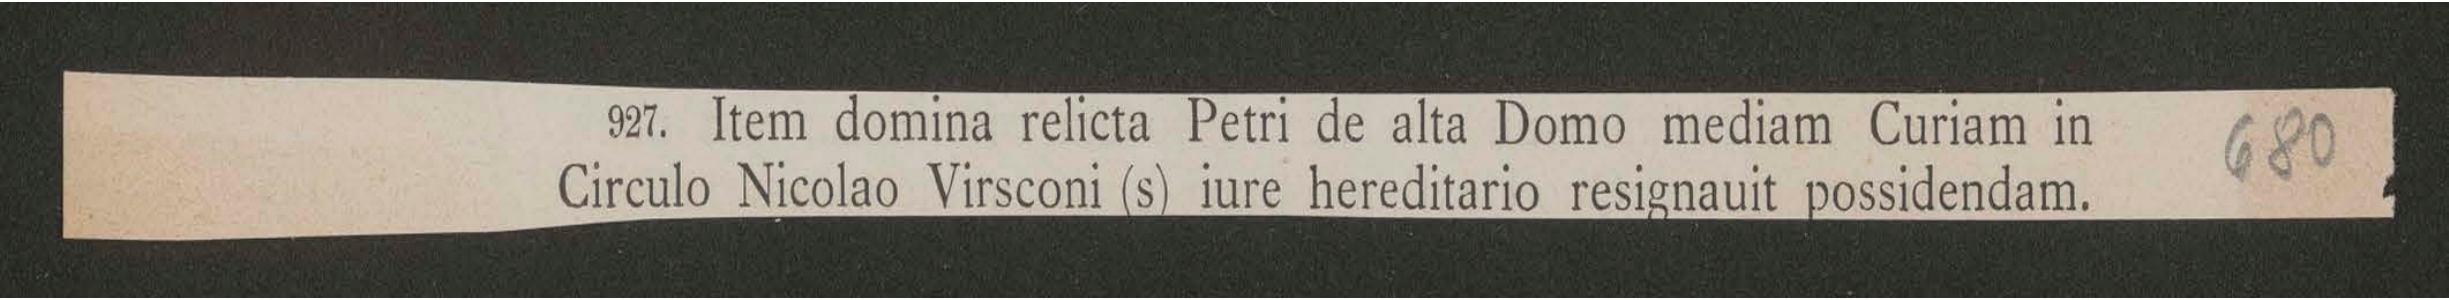 927. Item domina relicta Petri de alta Domo mediam Curiam in
Circulo Nicolao Virsconi (s) iure hereditario resignauit possidendam.
680